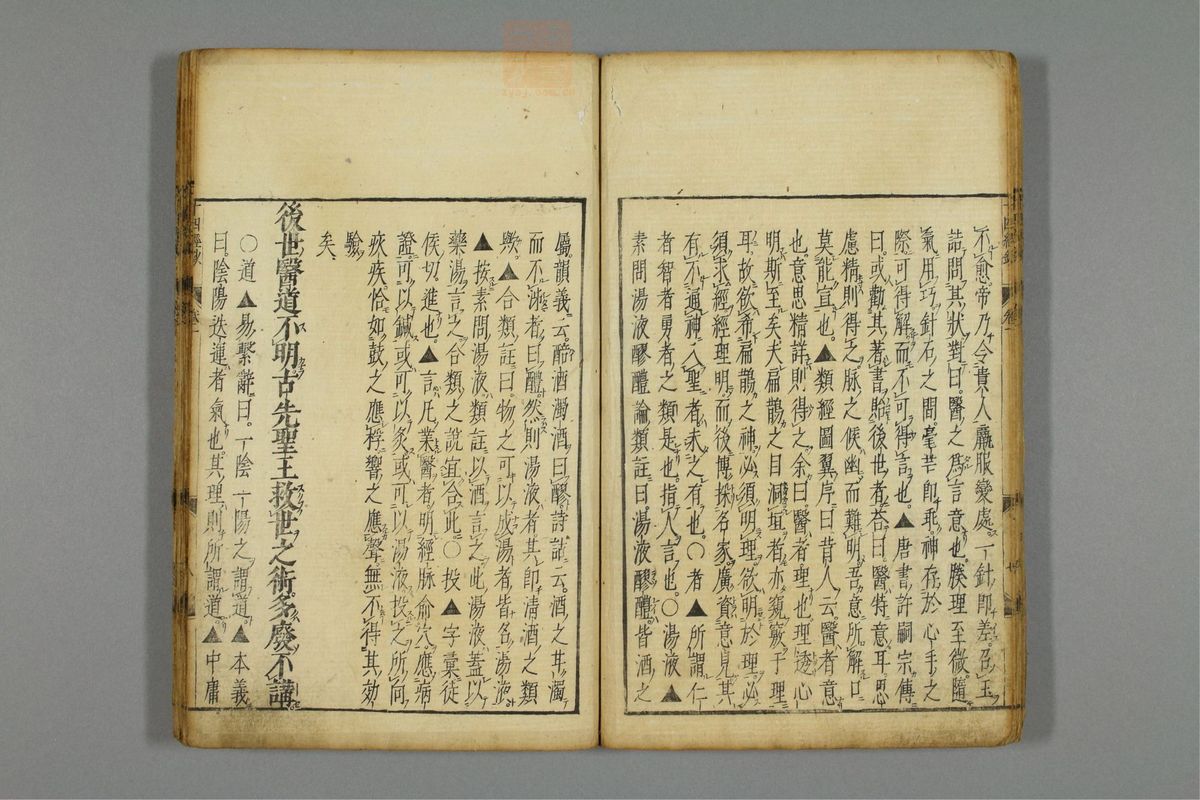 不愈帝乃令貴人羸服變處一針即差召玉
詰問其狀對曰醫之爲言意也腠理至微隨
氣用巧針石之間毫芒即乖神存於心手之
際可得解而不可得言也▲唐書許嗣宗傳
曰或勸其著書貽後世者荅曰醫特意耳思
慮精則得之脉之候幽而難明吾意所解口
莫能宣也▲類經圖翼序曰昔人云醫者意
也意思精詳則得之余曰醫者理也理透心
明斯至矣夫扁鵲之目洞垣者亦窺竅于理
耳故欲希扁鵲之神必須明理欲明於理必
須求經經理明而後博採名家廣資意見其
有不通神入聖者未之有也〇者▲所謂仁
者智者勇者之類是也指人言也〇湯液▲
素問湯液醪醴論類註曰湯液醪醴皆酒之
屬韻義云醅酒濁酒曰醪詩詁云酒之甘濁
而不泲者曰醴然則湯液者其即清酒之類
歟▲合類註曰物之可以成湯者皆名湯液
▲按素問湯液類註以酒言之此湯液蓋以
藥湯言之合類之說宜合此〇投▲字彙徒
侯切進也▲言凡業醫者明經脉俞穴應病
證可以鍼或可以灸或可以湯液投之所向
疾疾恰如鼓之應桴響之應聲無不得其効
驗
矣
後世醫道不明古先聖王救世之術多廢不講
〇道▲易繫辭曰一陰一陽之謂道▲本義
曰陰陽迭運者氣也其理則所謂道▲中庸
zysj.com.cn